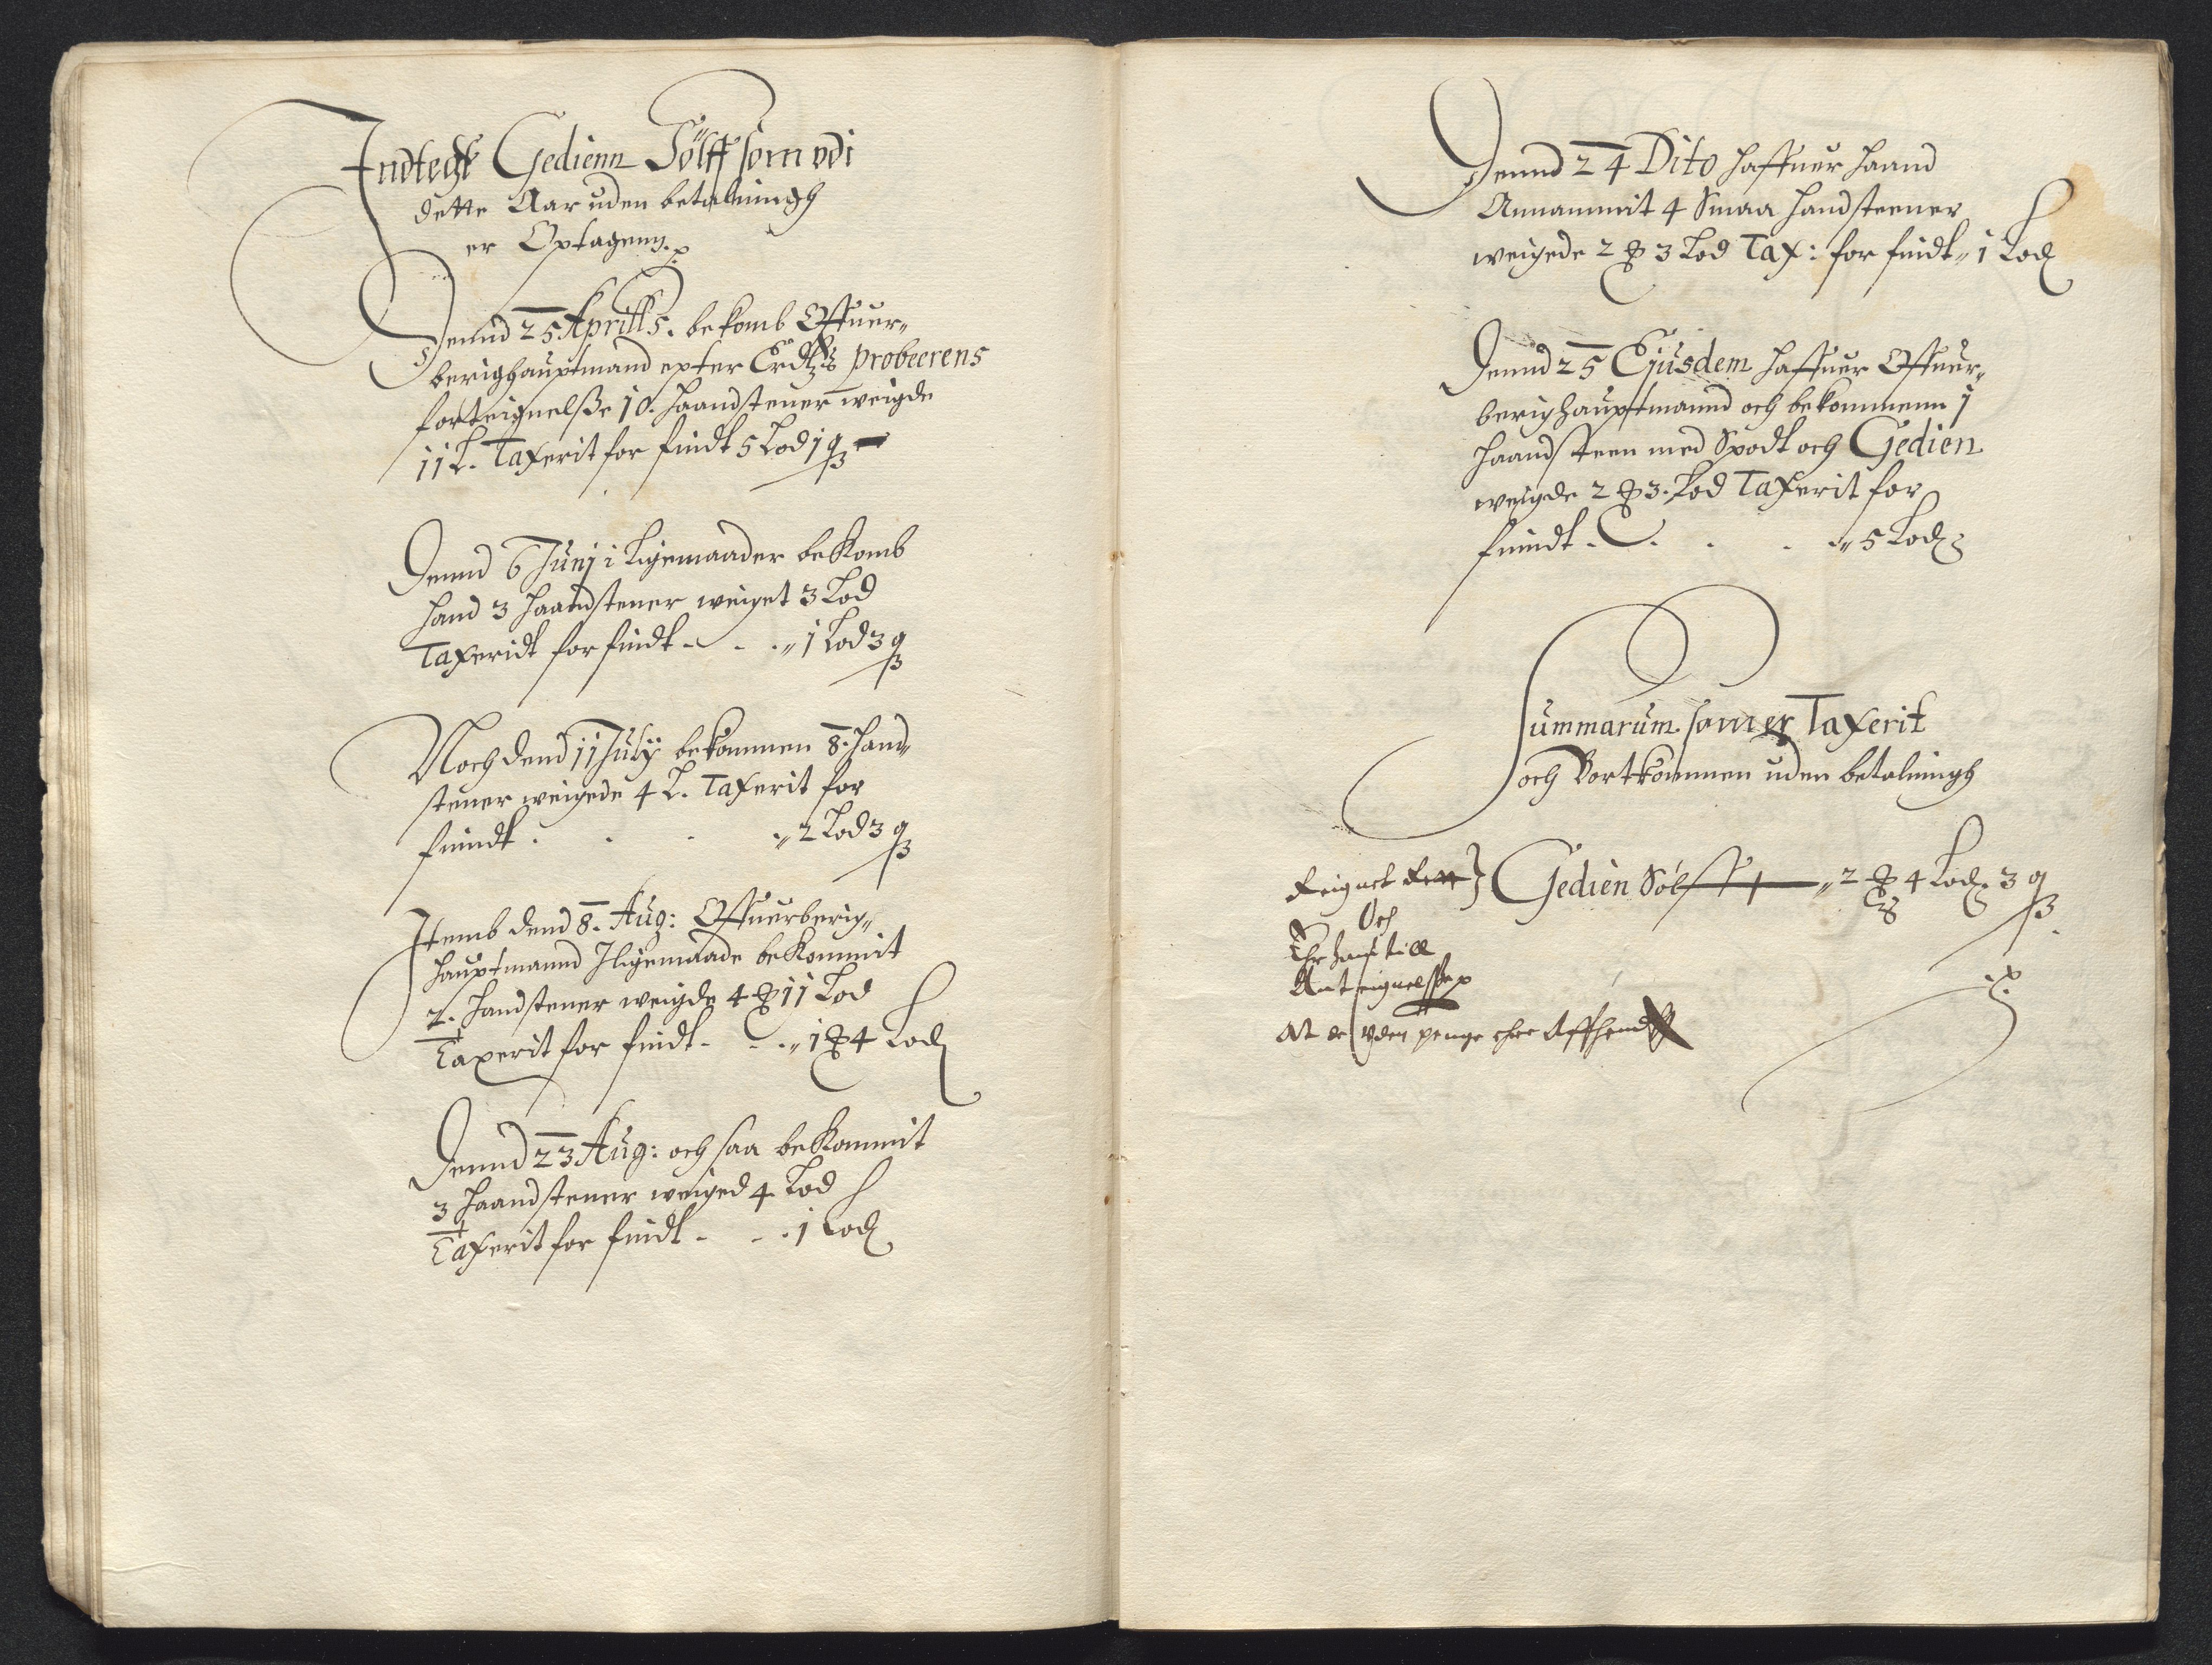 Indtegt Gedienn Sölff som vdi
dette Aar uden betalningh
er Optagenn.
Dennd 25 Aprillis. bekomb Offuer-
berighauptmand epter Erdtzs probeerens
forteignelße 10. Haandstener weigde
11 L. Taxerit for findt 5 Lod 1 q
Dennd 6 Junj i ligemaader bekomb
Hand 3 Haandstener weiget 3 Lod
Taxeridt for findt - - . „ 1 Lod 3 q
Noch dend 11 July bekommen 8. Hand-
stener weigede 4 L. Taxerit for
fiindt . . . „ 2 Lod 3 q
Itemb dend 8. Aug: Offuerberig-
hauptmannd Iligemaade bekommit
2. Handstener weigde 4 ℔ 11 Lod
Taxerit for findt - - . „ 1 ℔ 4 Lod
Dennd 23 Aug: och saa bekommit
3 Haandstener weiged 4 Lod
Taxerit for findt - - . 1 Lod
Dennd 24 Dito haffuer Haand
Annammit 4 Smaa Handsteener
weigede 2 ℔ 3 Lod Tax: for findt „ 1 Lod
Dennd 25 Ejusdem haffuer Offuer-
berighauptmannd och bekommenn 1
Haandsteen med Spodt och Gedien
weigde 2 ℔ 3. Lod Taxerit for
fiindt - . . . „ 5 Lod
Summarum som er Taxerit
och Bortkommen uden betalningh
Reignet Rett } Gedien Sölff „ 2 ℔ 4 Lod. 3 q
Och
till
Anteignelße
At de uden penge ehre Affhendt